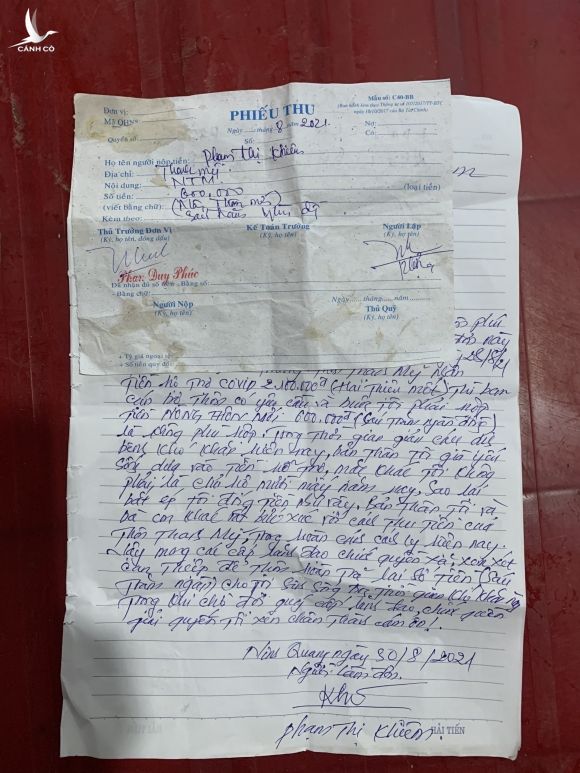 CÁNH CÒ
Đơn vị:
Mã QHNS
Quyển số:
PHIẾU THU
Ngày.....tháng 8 2021
Số:
Mẫu số: C40-BB
(Ban hành kèm theo Thông tư số 107/2017/TT-BTC
ngày 10/10/2017 của Bộ Tài Chính)
Nợ:
Có
Họ tên người nộp tiền: Phạm Thị Khiên
Địa chỉ: Thanh Mỹ
Nội dung: NTM
Số tiền: 600.000 (loại tiền)
(viết bằng chữ): (Nông Thôn mới)
Kèm theo: Sáu trăm
Thủ Trưởng Đơn Vị
(Ký, họ tên, đóng dấu)
Kế Toán Trưởng
(Ký, họ tên)
Người Lập
(Ký, họ tên)
Phan Duy Phúc
Đã nhận đủ số tiền - Bằng số:
- Bằng chữ:
Ngày...... tháng...... năm......
Người Nộp
(Ký, họ tên)
Thủ Quỹ
(Ký, họ tên)
+ Tỷ giá ngoại tệ
+ Số tiền quy đổi:
28/8/21
Thôn Thanh Mỹ nhận
Tiền hỗ trợ covip 2.100.000đ (Hai Triệu một) Thì ban
cáp bộ Thôn có yêu cầu và buộc tôi phải nộp
Tiền NÔNG THÔN MỚI 600.000đ (Sáu Trăm ngàn đồng)
là không phù hợp. Trong Thời gian giãn cách dịch
bệnh khó khăn hiện nay, bản thân tôi già yếu
sống dựa vào tiền hỗ trợ, mặc khác tôi không
phải là chủ hộ mười mấy năm nay, sao lại
bắt ép tôi đóng tiền như vậy. Bản thân tôi và
bà con khác rất bức xúc về cách thu tiền của
Thôn Thanh Mỹ, trong hoàn cảnh cách ly hiện nay.
Vậy mong các cấp lãnh đạo chính quyền xã, xem xét
can thiệp để Thôn hoàn trả lại số tiền (Sáu
Trăm ngàn) cho tôi sinh sống trong thời gian khó khăn
Trong khi chờ đợi quý cấp lãnh đạo, chính quyền
giải quyết tôi xin chân thành cảm ơn!
Ninh Quang ngày 30/8/2021
Người làm đơn.
Phạm Thị Khiên
HẢI TIẾN